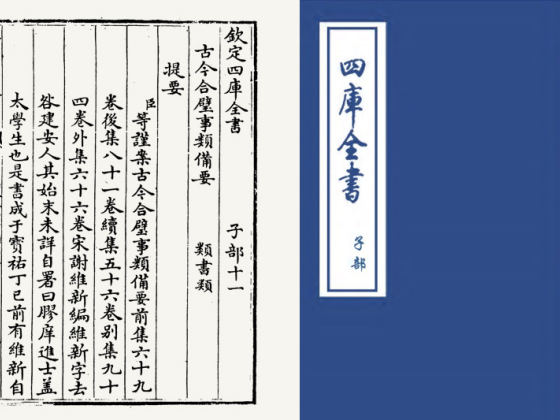 欽定四庫全書 子部十一
古今合璧事類備要 類書類
提要
臣等謹案古今合璧事類備要前集六十九
卷後集八十一卷續集五十六卷别集九十
四卷外集六十六卷宋謝維新編維新字去
咎建安人其始末未詳自署曰膠庠進士蓋
太學生也是書成于寶祐丁巳前有維新自
四庫全書
子部